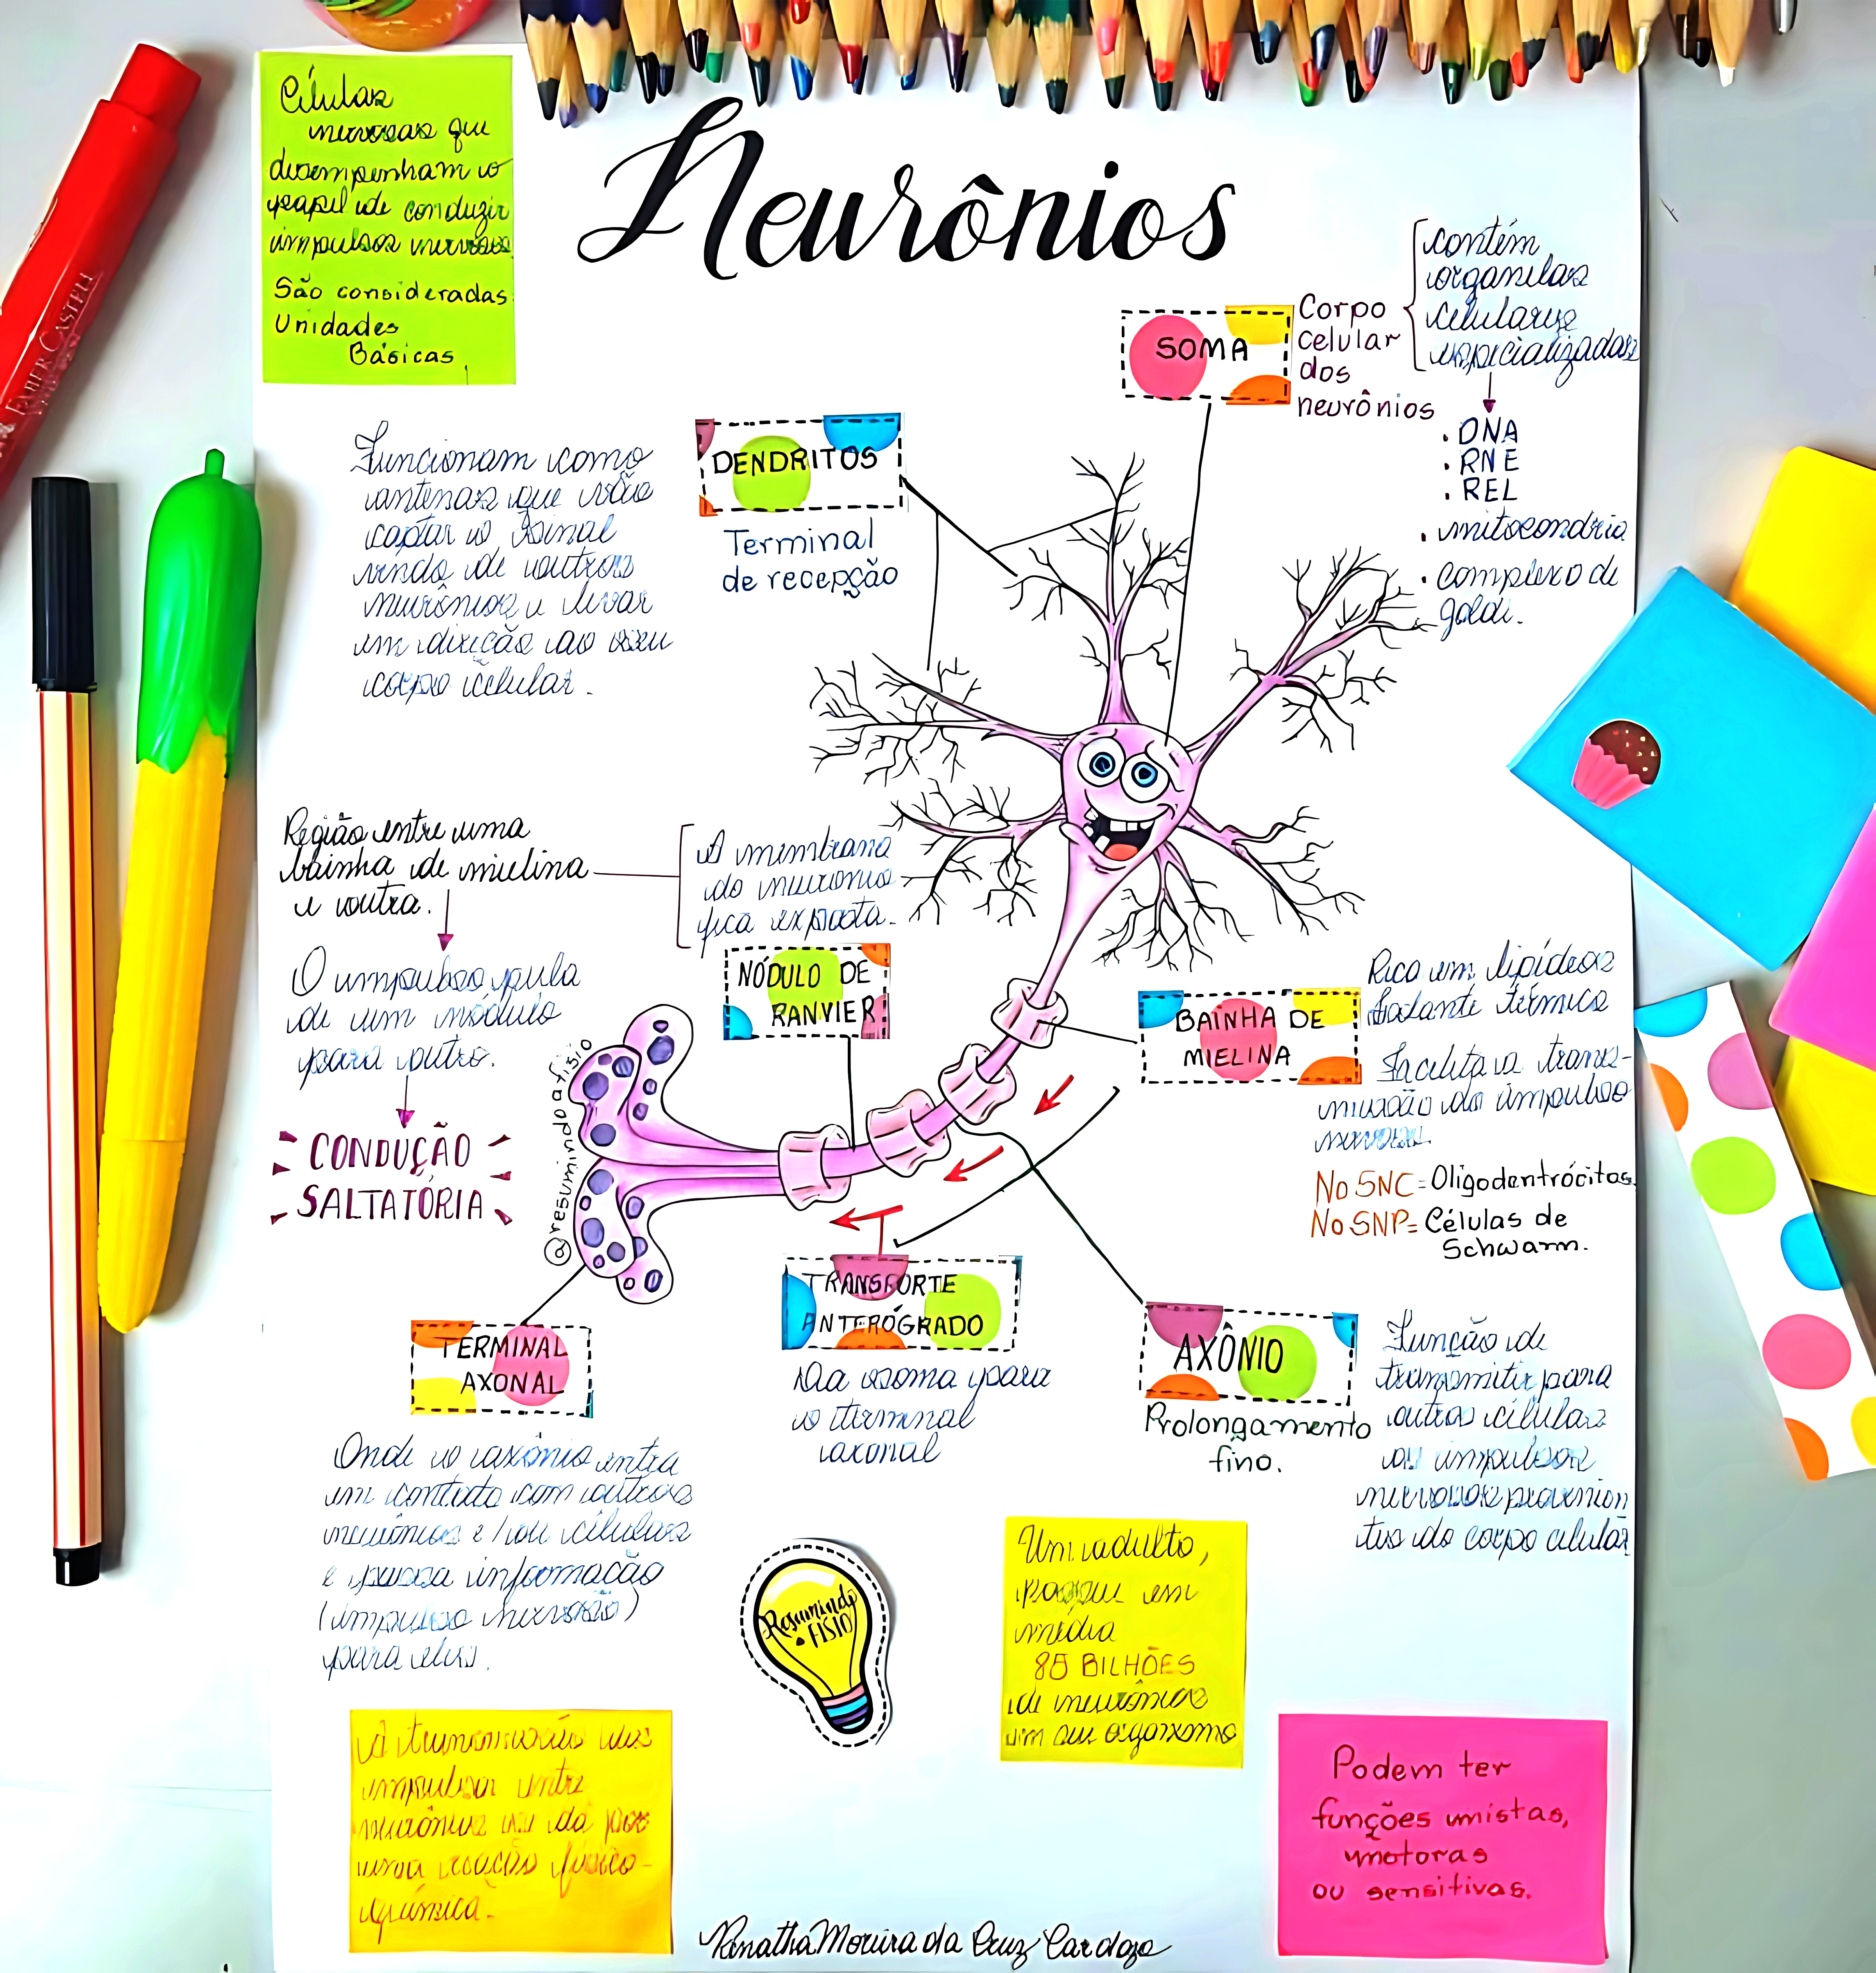 Neurônios
Células
nervosas que
desempenham o
papel de conduzir
impulsos nervosos.
São consideradas
Unidades
Básicas.
FABER-CASTELL
SOMA
Corpo
celular
dos
neurônios
contém
organelas
celulares
especializadas
. DNA
. RNE
. REL
. mitocondria
. complexo de
goldi.
DENDRITOS
Terminal
de recepção
Funcionam como
antenas que vão
captar o sinal
vindo de outros
neurônios e levar
em direção ao seu
corpo celular.
Região entre uma
bainha de mielina
e outra.
A membrana
do neuronio
fica exposta.
O impulso pula
de um nódulo
para outro.
CONDUÇÃO
SALTATÓRIA
NÓDULO DE
RANVIER
BAINHA DE
MIELINA
Rico em lipídeos
Isolante térmico
Facilita a trans-
missão do impulso
nervoso.
No SNC = Oligodentrócitos.
No SNP = Células de
Schwann.
@resumindoafisio
TRANSPORTE
ANTERÓGRADO
Da soma para
o terminal
axonal
TERMINAL
AXONAL
Onde o axônio entra
em contato com outros
neurônios e/ou células
e passa informação
(impulso nervoso)
para eles.
AXÔNIO
Prolongamento
fino.
Função de
transmitir para
outras células
os impulsos
nervosos provenien
tes do corpo celular
Resumindo
a FISIO
Um adulto,
possue em
média
85 BILHÕES
de neurônios
em seu organismo
A transmissão dos
impulsos entre
neurônios se dá por
uma reação físico-
química.
Podem ter
funções mistas,
motoras
ou sensitivas.
Renatha Moreira da Cruz Cardozo